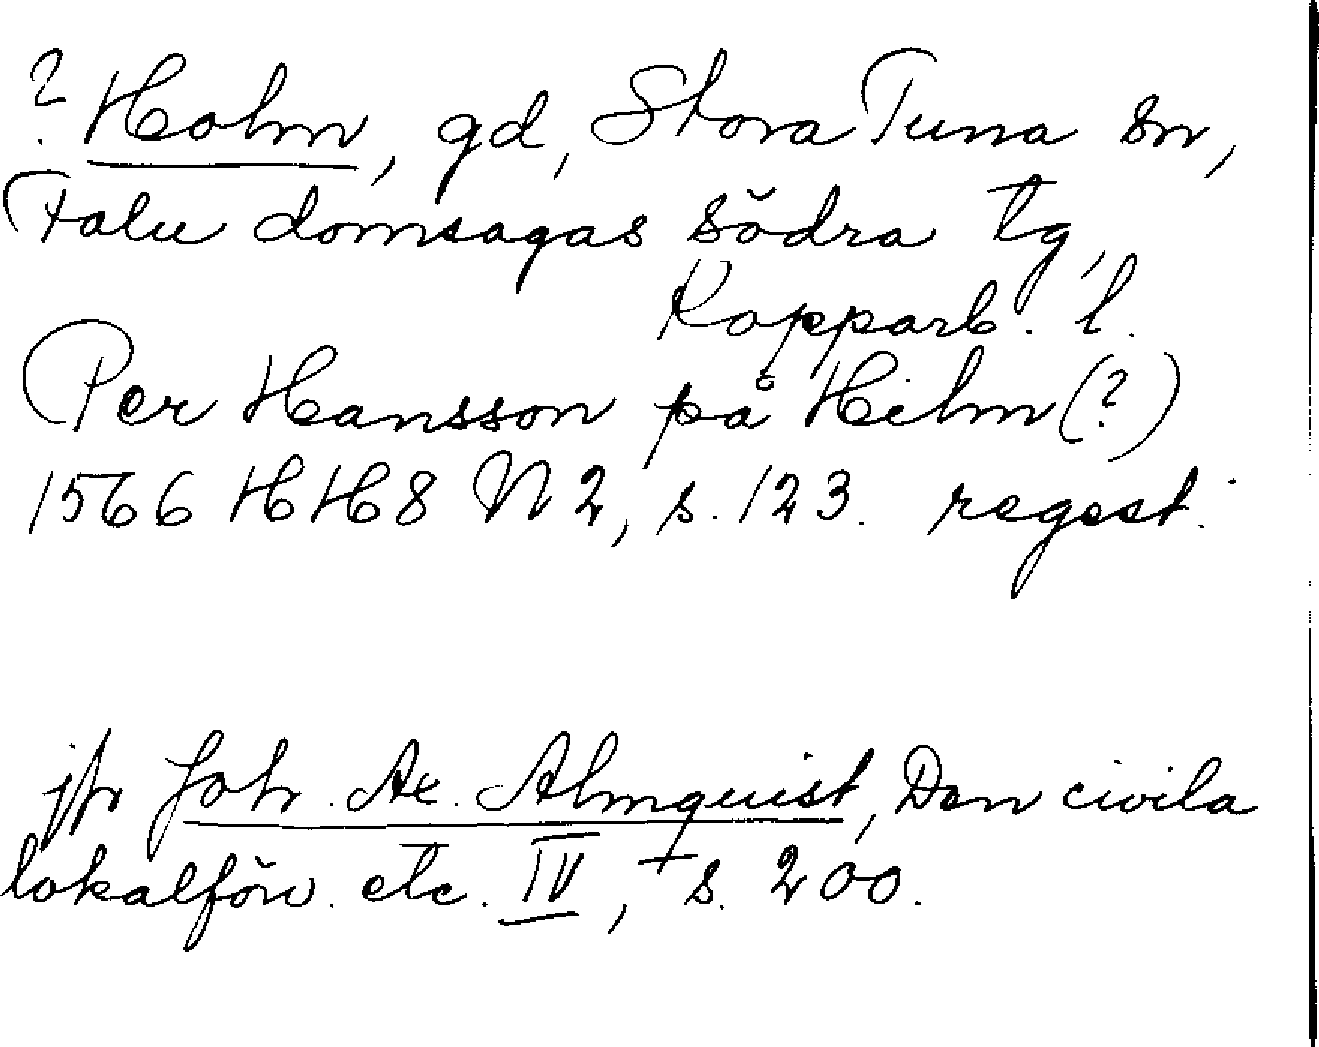 ? Holm, gd, Stora Tuna sn,
Falu domsagas södra tg,
Kopparb. l.
Per Hansson på Hilm (?)
1566 HH8 N 2, s. 123. regest.
jfr Joh. Ax. Almquist, Den civila
lokalförv. etc. IV, s. 200.